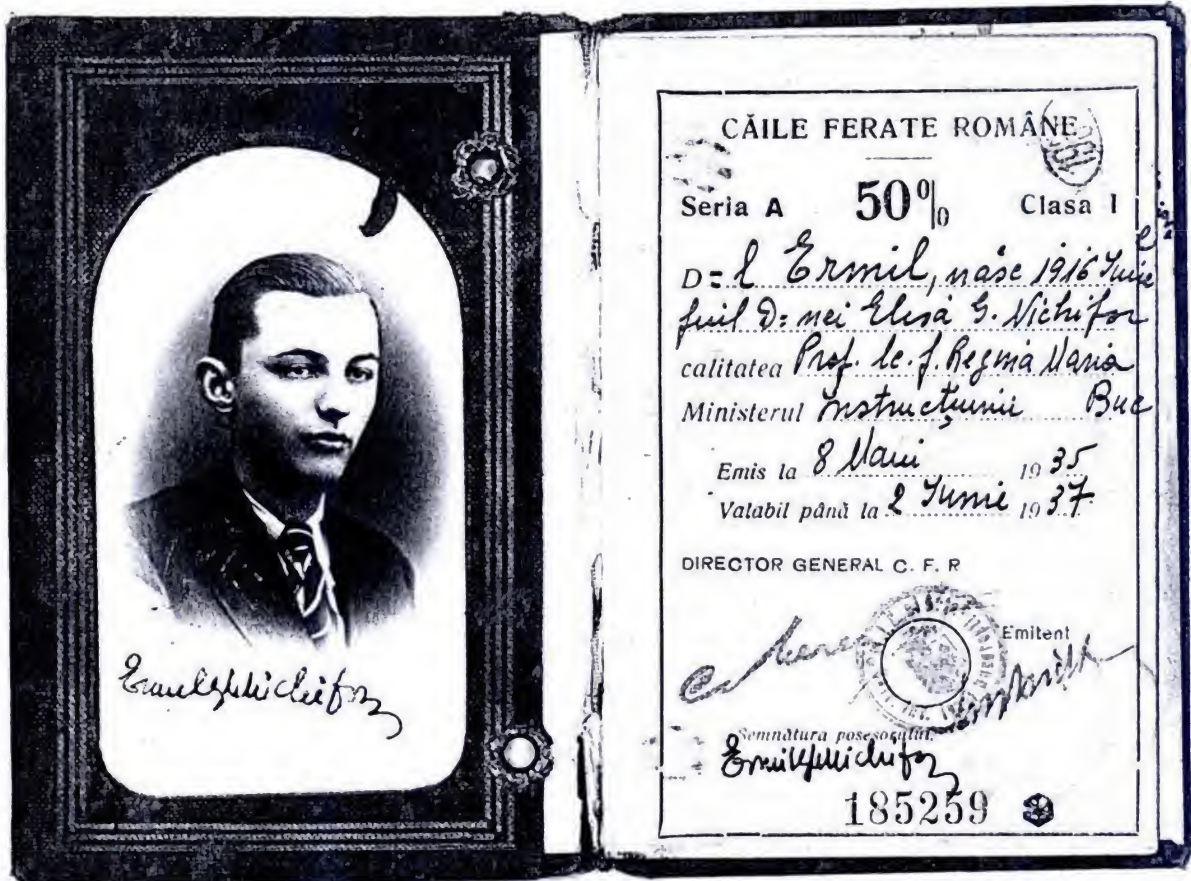 CĂILE FERATE ROMÂNE
Seria A 50% Clasa I
D=l Ermil, născ 1916 Iunie
fiul D=nei Elisa G. Nichifor
calitatea Prof. lc. f. Regina Maria
Ministerul Instrucțiunii Buc
Emis la 8 Maiu 1935
Valabil până la 2 Iunie 1937
DIRECTOR GENERAL C. F. R
Emitent
Semnătura posesorului:
185259